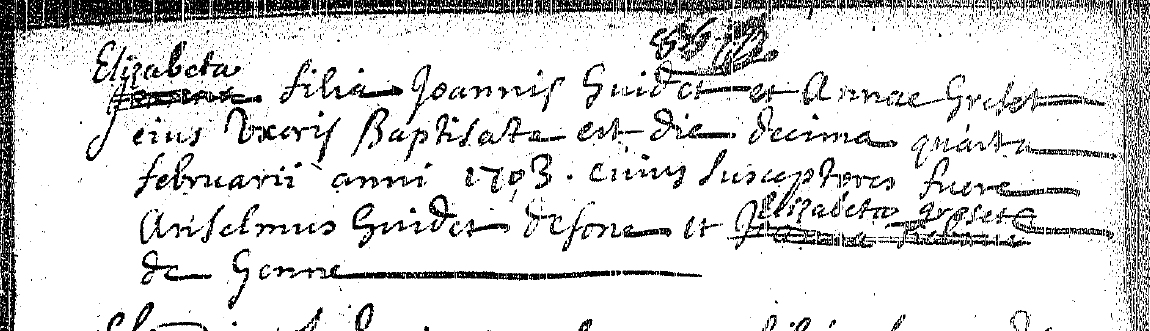 Elizabeta
filia Joannis Guidet et Annae Greset
eius Uxoris Baptisata est die decima quarta
februarii anni 1703. cuius susceptores fuere
Anselmus Guidet desone et Elizabeta greset
de Genne